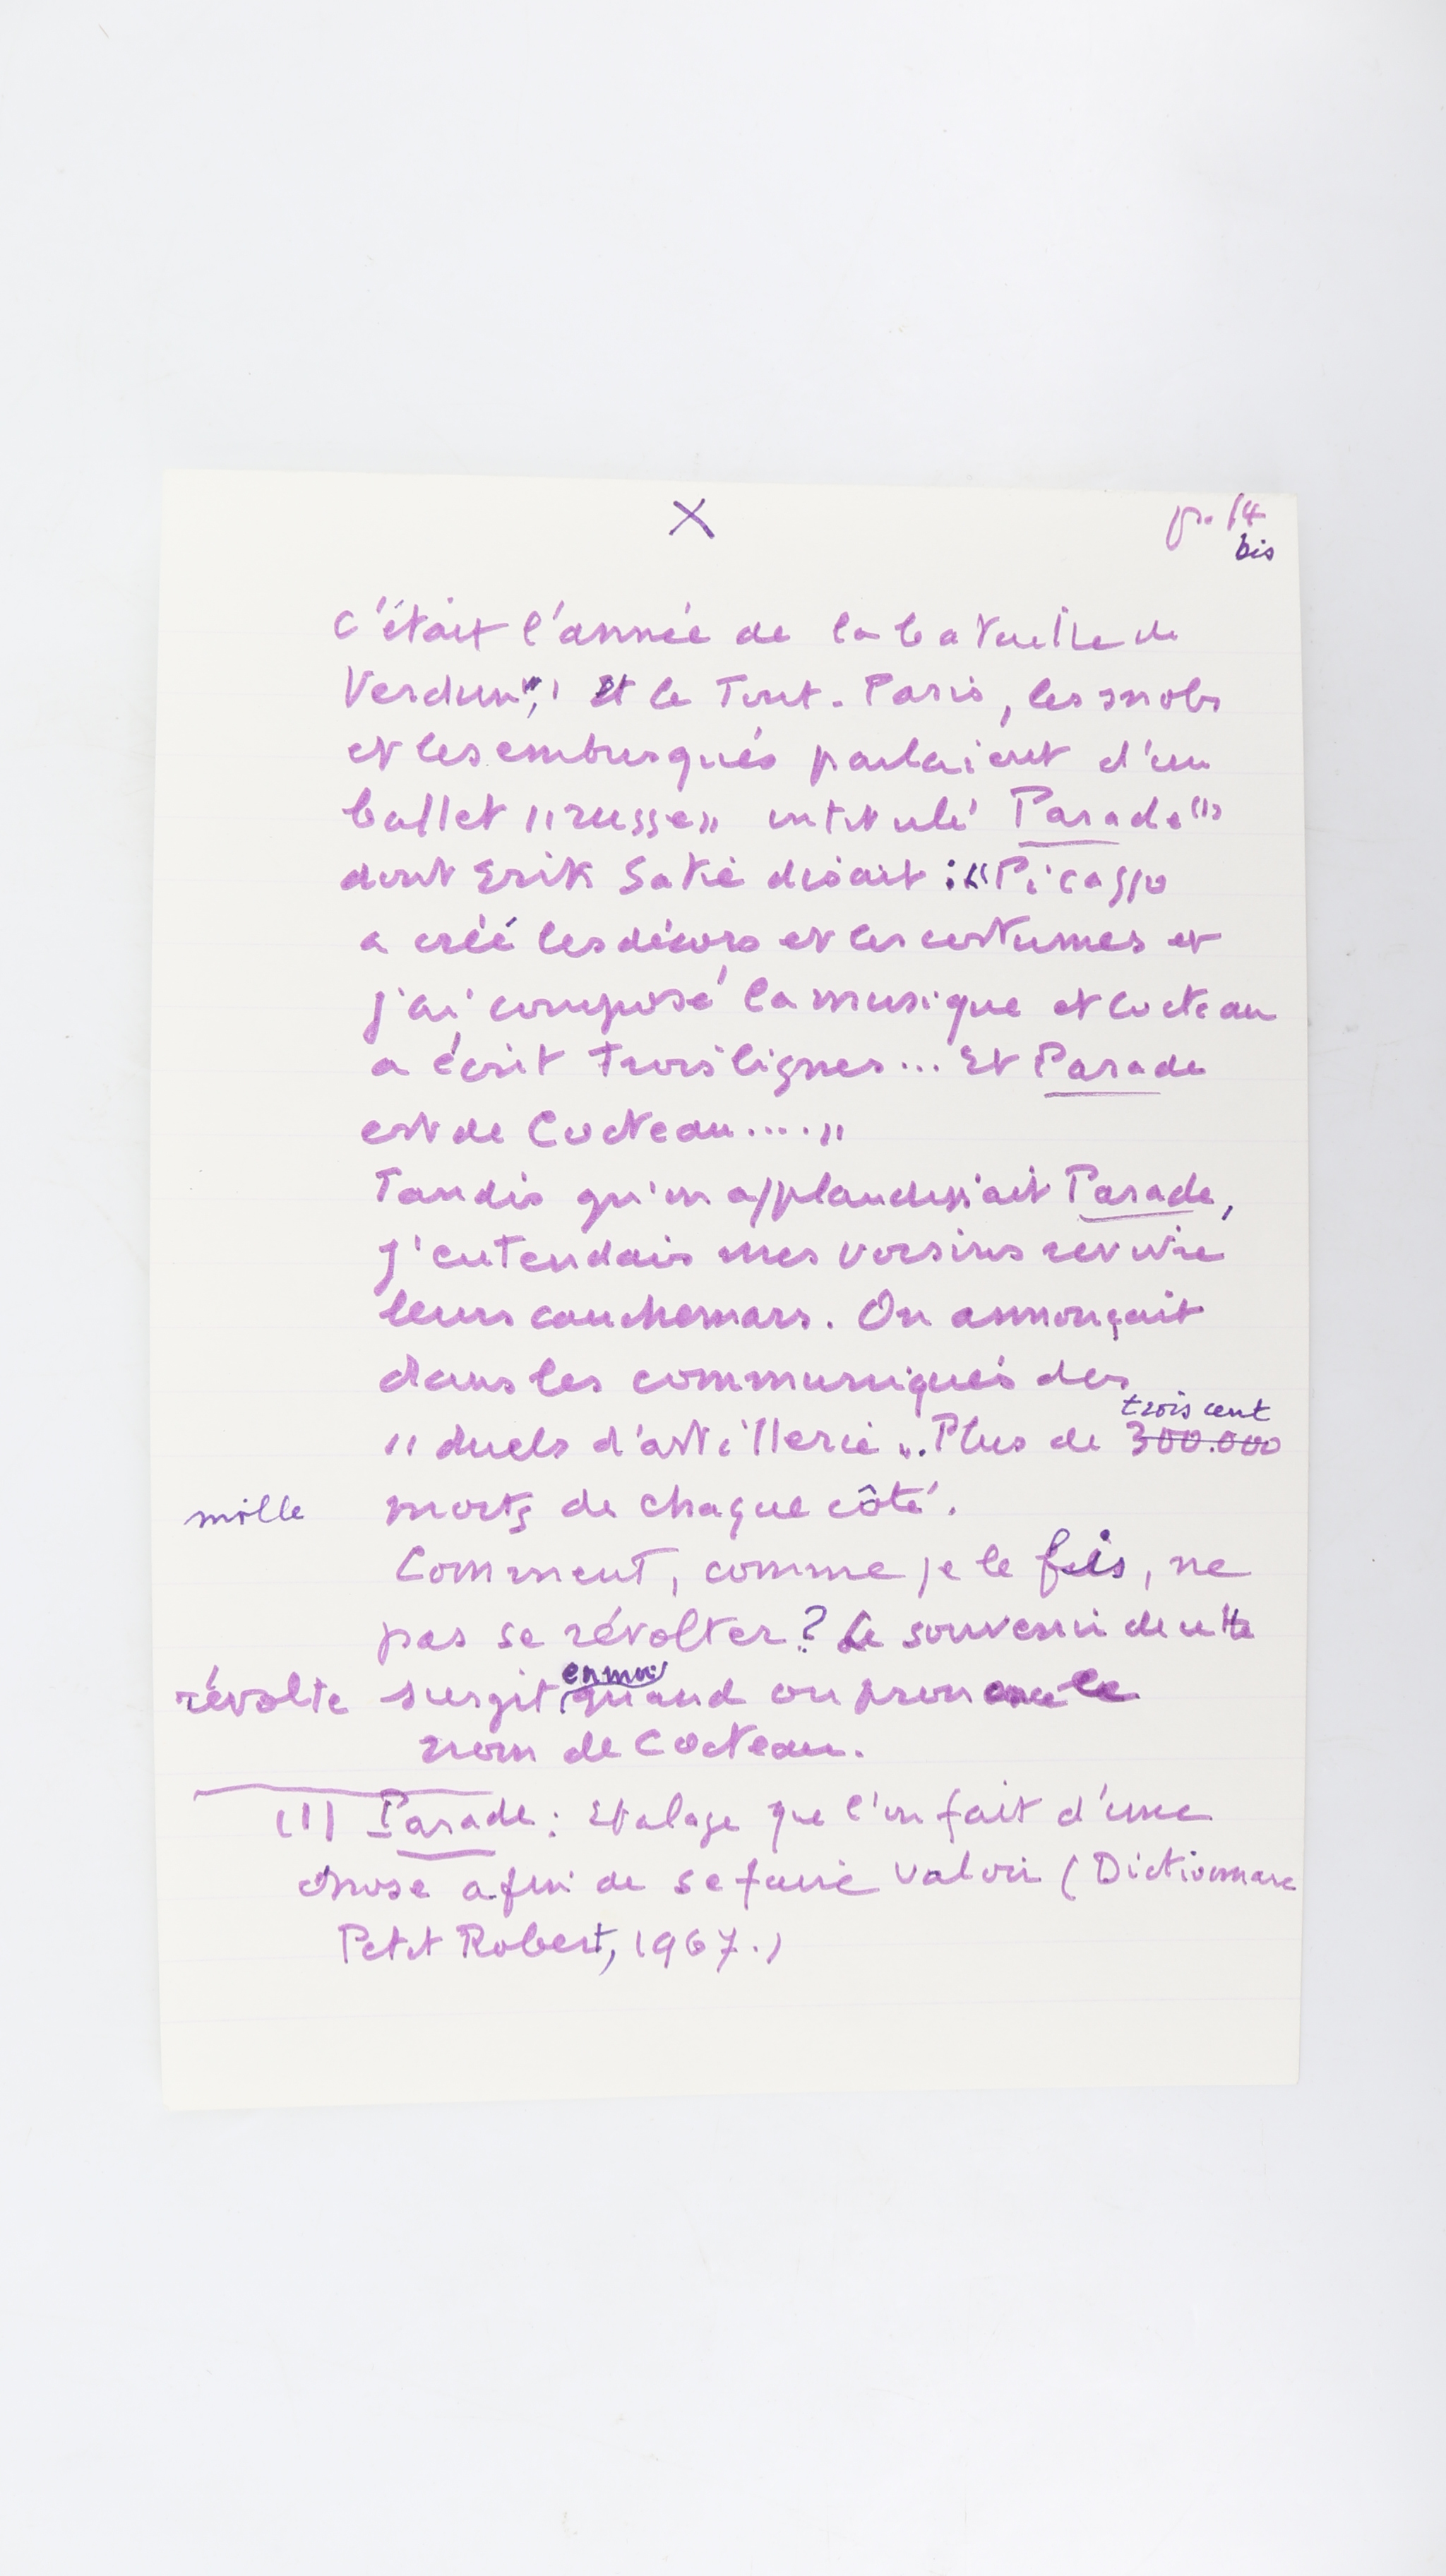 X
p. 14
bis
C'était l'année de la bataille de
Verdun, et le Tout-Paris, les snobs
et les embusqués parlaient d'un
ballet "russe" intitulé Parade (1)
dont Erik Satie disait : "Picasso
a créé les décors et les costumes et
j'ai composé la musique et Cocteau
a écrit trois lignes... Et Parade
est de Cocteau...."
Tandis qu'on applaudissait Parade,
j'entendais mes voisins revivre
leurs cauchemars. On annonçait
dans les communiqués des
trois cent
"duels d'artillerie". Plus de 300.000
mille morts de chaque côté.
Comment, comme je le fis, ne
pas se révolter ? Le souvenir de cette
en moi
révolte surgit quand on prononce le
nom de Cocteau.
(1) Parade : Etalage que l'on fait d'une
chose afin de se faire valoir (Dictionnaire
Petit Robert, 1967.)